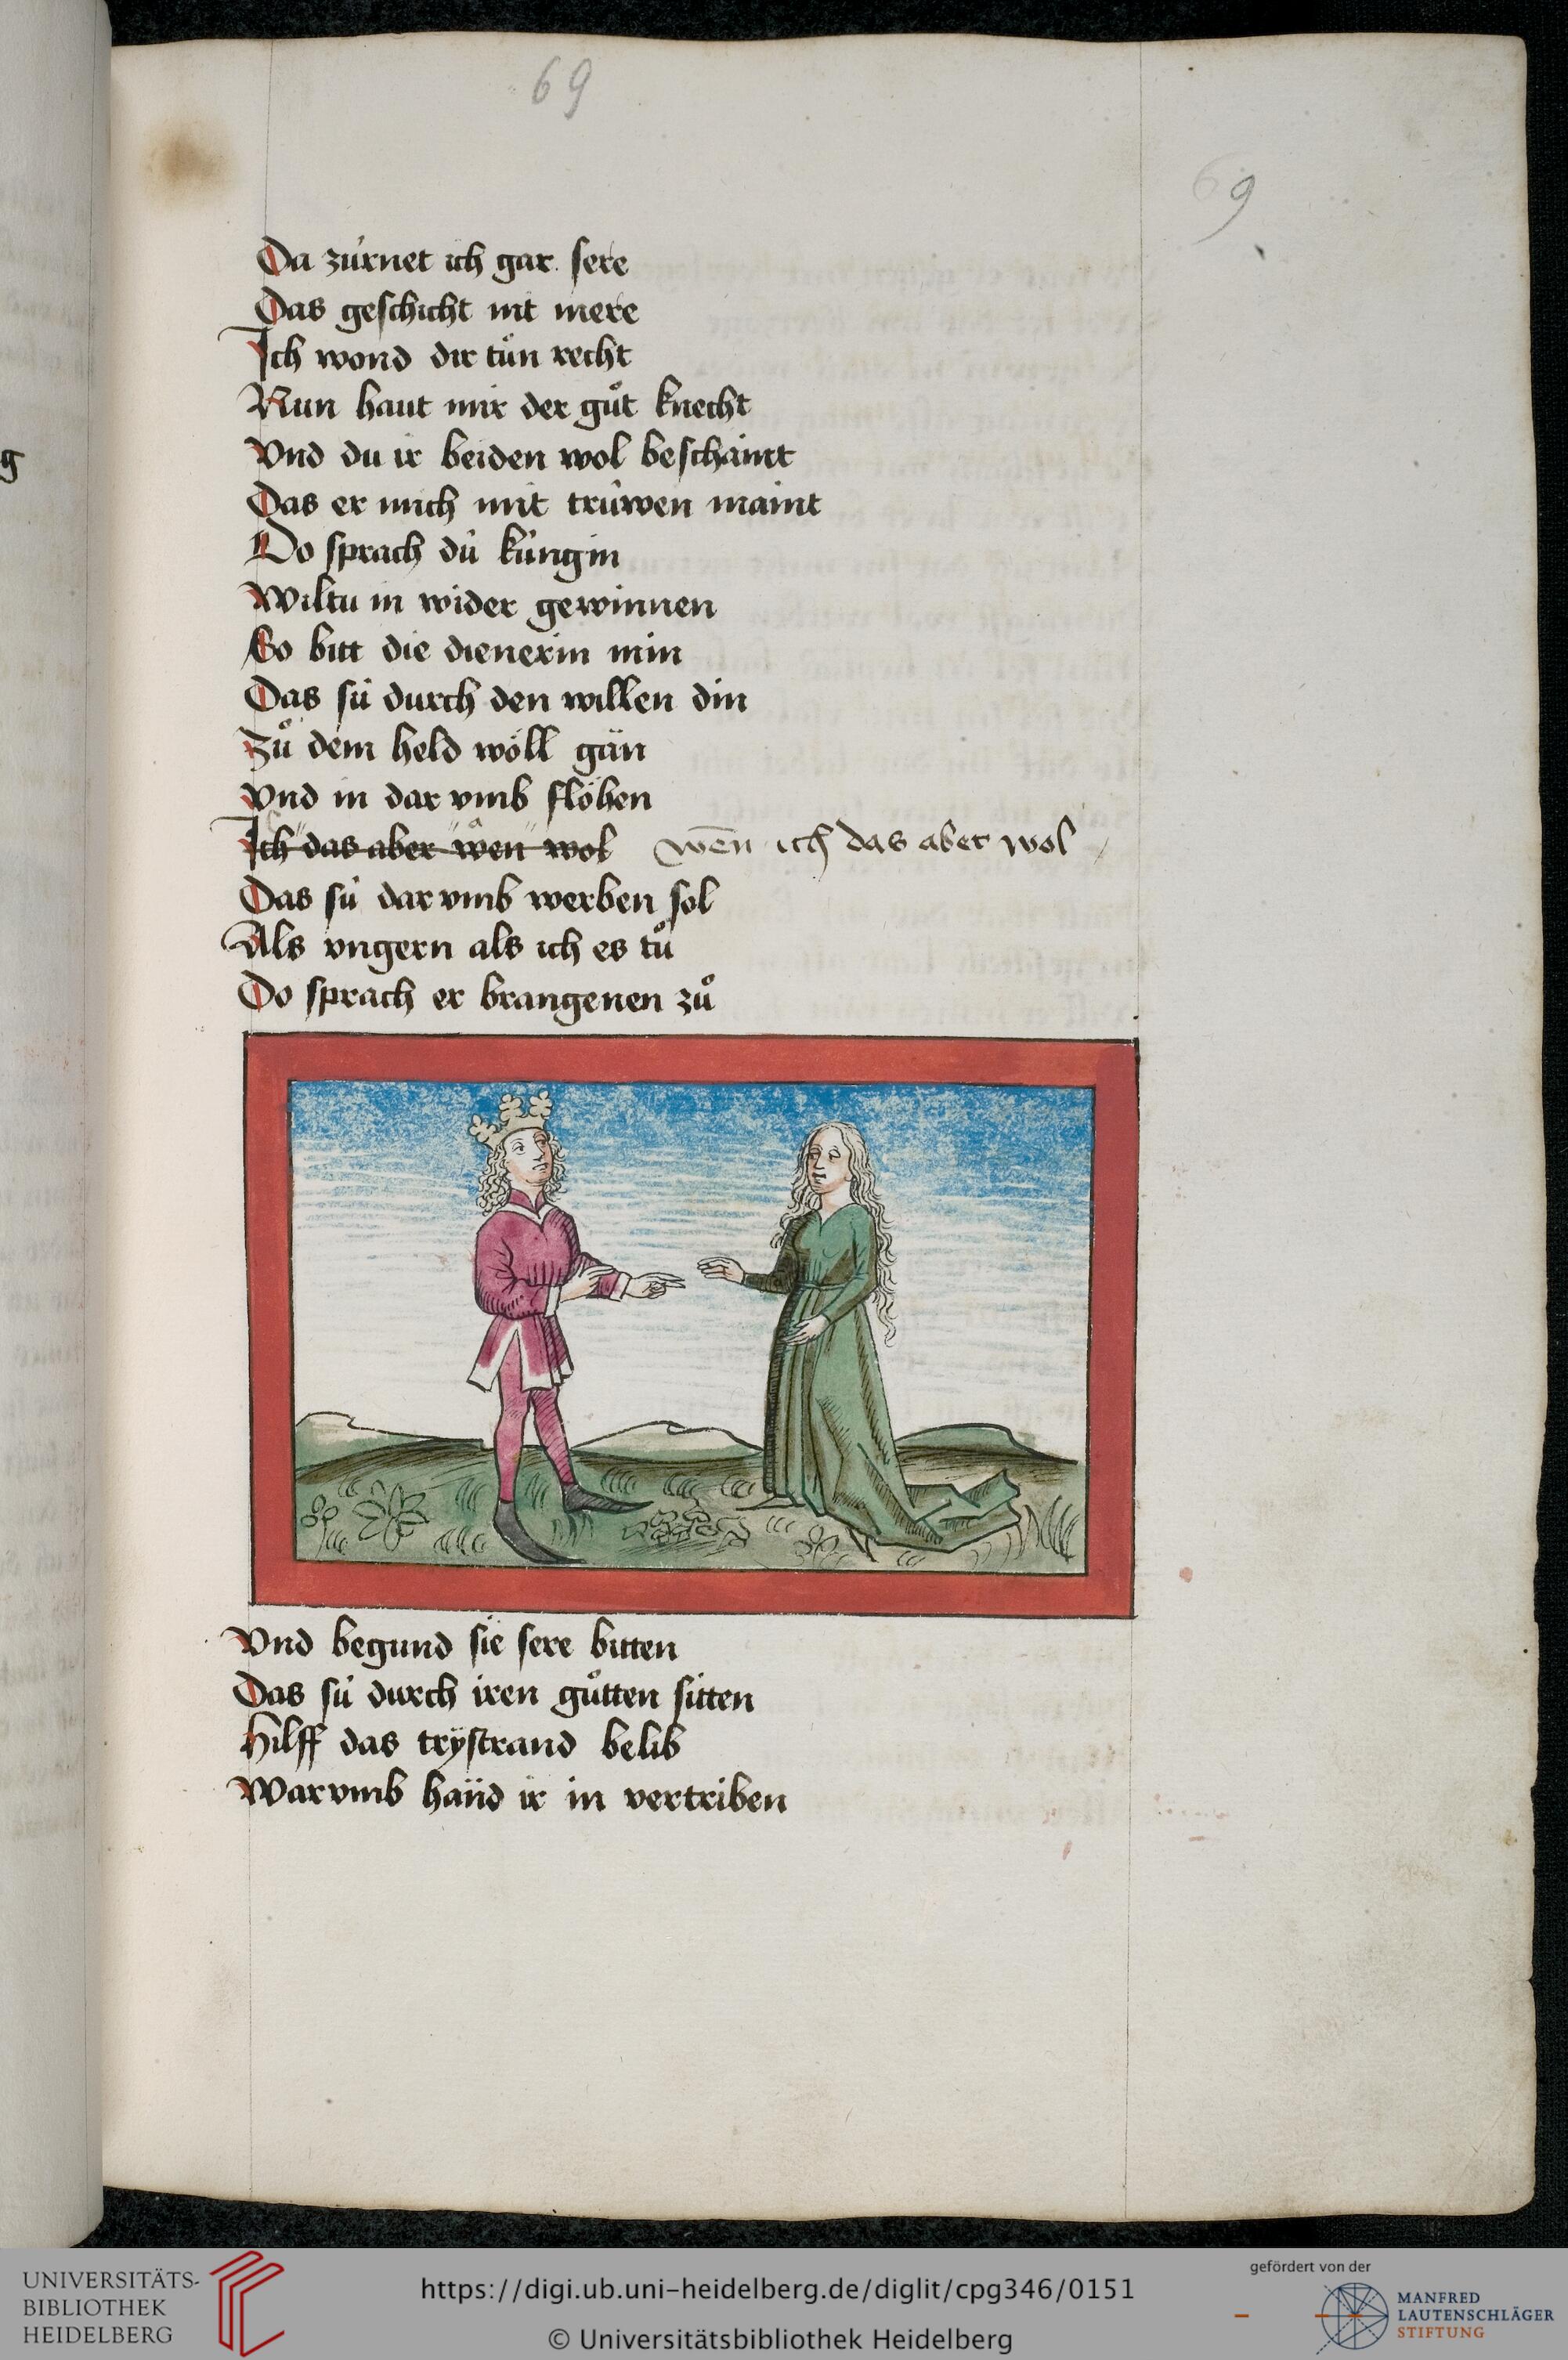 69
69
Da zúrnet ich gar sere
Das geschicht nit mere
Ich wond dir tůn recht
Nun haut mir der gůt knecht
Vnd du ir beiden wol beschaint
Das er mich mit trúwen maint
Do sprach dú kúngin
Wiltu in wider gewinnen
So bitt die dienerin min
Das sú durch den willen din
Zů dem held wöll gän
Vnd in dar vmb flöhen
Ich das aber wen wol wen̄ ich das aber wol
Das sú dar vmb werben sol
Als vngern als ich es tů
Do sprach er brangenen zů
Vnd begund sie sere bitten
Das sú durch iren gůtten sitten
Hilff das trÿstrand belib
Warvmb haúd ir in vertriben
g
UNIVERSITÄTS-
BIBLIOTHEK
HEIDELBERG
https://digi.ub.uni-heidelberg.de/diglit/cpg346/0151
© Universitätsbibliothek Heidelberg
gefördert von der
MANFRED
LAUTENSCHLÄGER
STIFTUNG